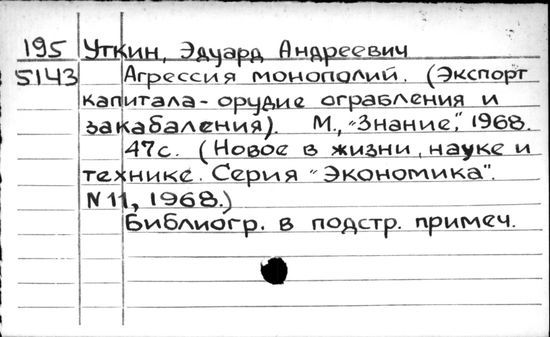 195 Уткин, Эдуард Андреевич
5143 Агрессия монополий. (Экспорт
капитала - орудие ограбления и
закабаления). М., "Знание", 1968.
47с. (Новое в жизни, науке и
технике. Серия "Экономика".
N 11, 1968.)
Библиогр. в подстр. примеч.